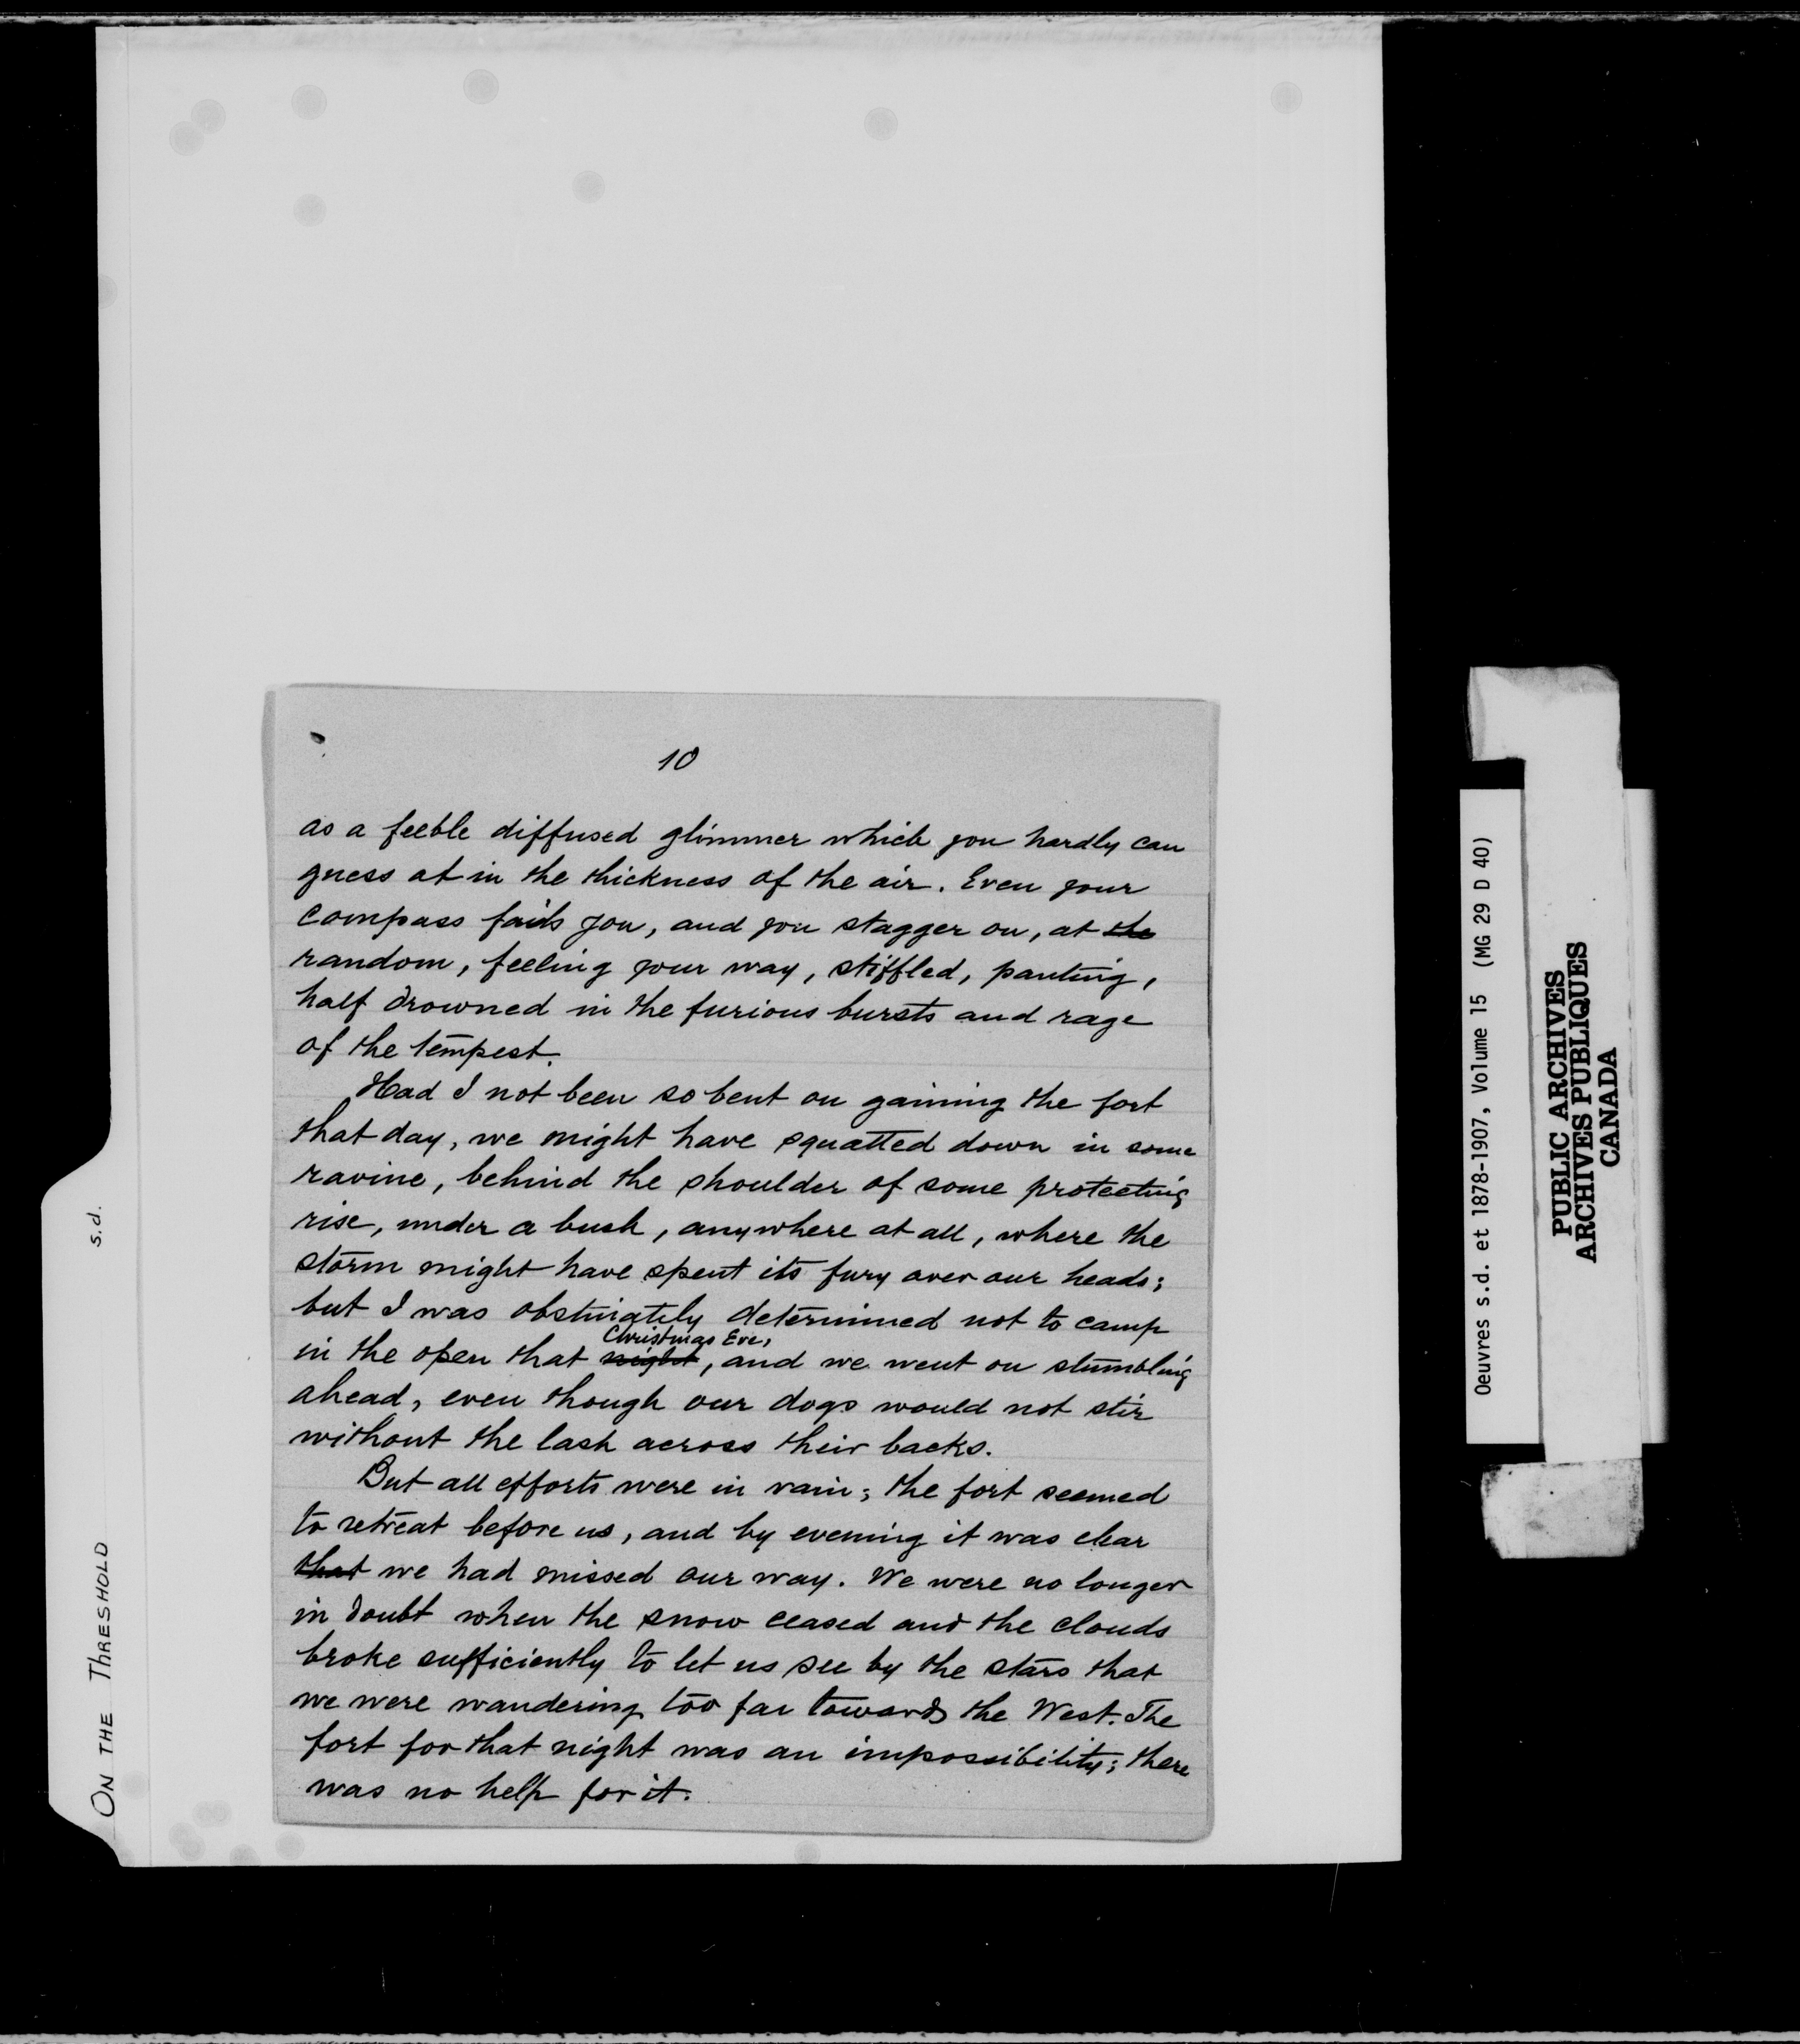 10
as a feeble diffused glimmer which you hardly can
guess at in the thickness of the air. Even your
compass fails you, and you stagger on, at the
random, feeling your way, stiffled, panting,
half drowned in the furious bursts and rage
of the tempest.
Had I not been so bent on gaining the fort
that day, we might have squatted down in some
ravine, behind the shoulder of some protecting
rise, under a bush, anywhere at all, where the
storm might have spent its fury over our heads;
but I was obstinately determined not to camp
Christmas Eve,
in the open that night, and we went on stumbling
ahead, even though our dogs would not stir
without the lash across their backs.
But all efforts were in vain; the fort seemed
to retreat before us, and by evening it was clear
that we had missed our way. We were no longer
in doubt when the snow ceased and the clouds
broke sufficiently to let us see by the stars that
we were wandering too far towards the West. The
fort for that night was an impossibility; there
was no help for it.
ON THE THRESHOLD s.d.
Oeuvres s.d. et 1878-1907, Volume 15 (MG 29 D 40)
PUBLIC ARCHIVES
ARCHIVES PUBLIQUES
CANADA